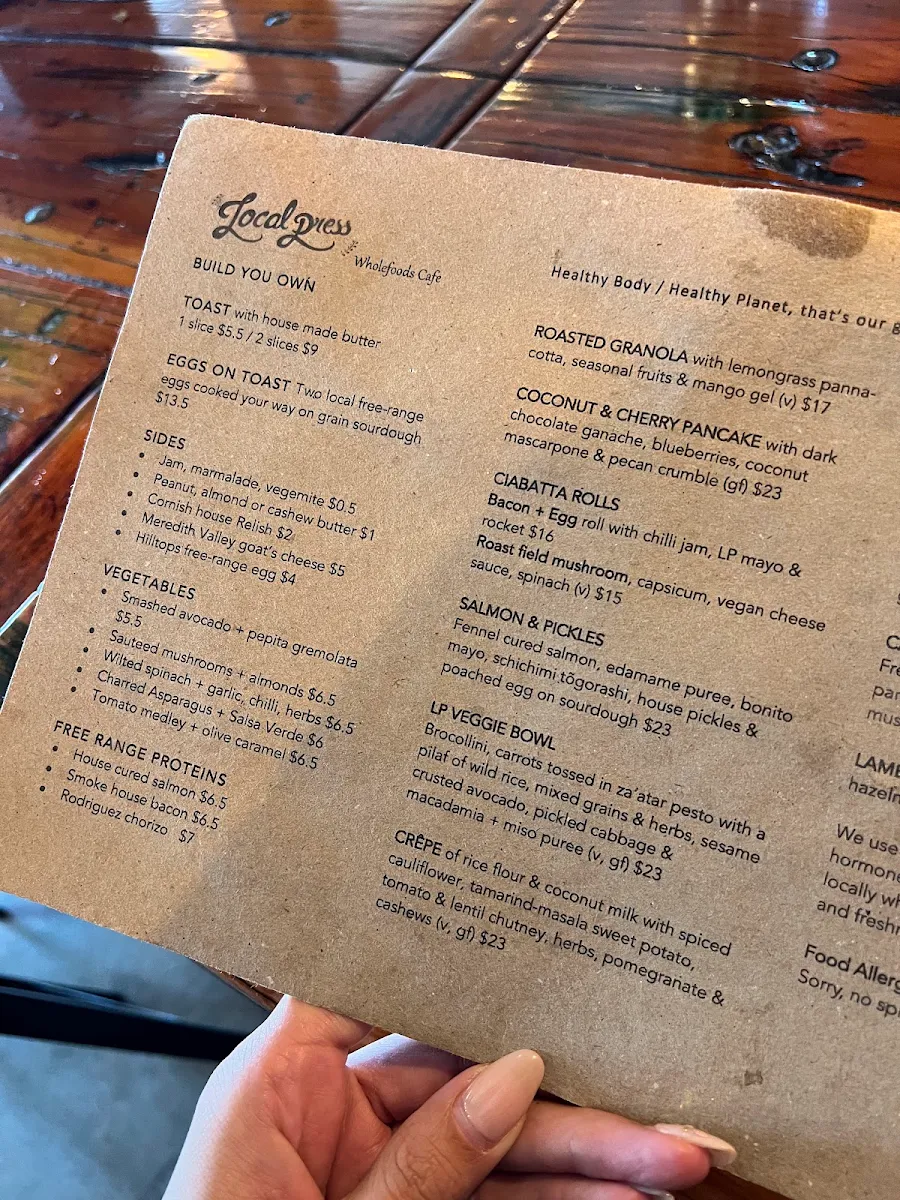 Local Press
Wholefoods Cafe
BUILD YOU OWN
TOAST with house made butter
1 slice $5.5 / 2 slices $9
EGGS ON TOAST Two local free-range
eggs cooked your way on grain sourdough
$13.5
SIDES
• Jam, marmalade, vegemite $0.5
• Peanut, almond or cashew butter $1
• Cornish house Relish $2
• Meredith Valley goat's cheese $5
• Hilltops free-range egg $4
VEGETABLES
• Smashed avocado + pepita gremolata
$5.5
• Sauteed mushrooms + almonds $6.5
• Wilted spinach + garlic, chilli, herbs $6.5
• Charred Asparagus + Salsa Verde $6
• Tomato medley + olive caramel $6.5
FREE RANGE PROTEINS
• House cured salmon $6.5
• Smoke house bacon $6.5
• Rodriguez chorizo $7
Healthy Body / Healthy Planet, that's our
ROASTED GRANOLA with lemongrass panna-
cotta, seasonal fruits & mango gel (v) $17
COCONUT & CHERRY PANCAKE with dark
chocolate ganache, blueberries, coconut
mascarpone & pecan crumble (gf) $23
CIABATTA ROLLS
Bacon + Egg roll with chilli jam, LP mayo &
rocket $16
Roast field mushroom, capsicum, vegan cheese
sauce, spinach (v) $15
SALMON & PICKLES
Fennel cured salmon, edamame puree, bonito
mayo, schichimi tōgorashi, house pickles &
poached egg on sourdough $23
LP VEGGIE BOWL
Brocollini, carrots tossed in za'atar pesto with a
pilaf of wild rice, mixed grains & herbs, sesame
crusted avocado, pickled cabbage &
macadamia + miso puree (v, gf) $23
CRÊPE of rice flour & coconut milk with spiced
cauliflower, tamarind-masala sweet potato,
tomato & lentil chutney, herbs, pomegranate &
cashews (v, gf) $23
We use
locally
and
Food
Sorry, no